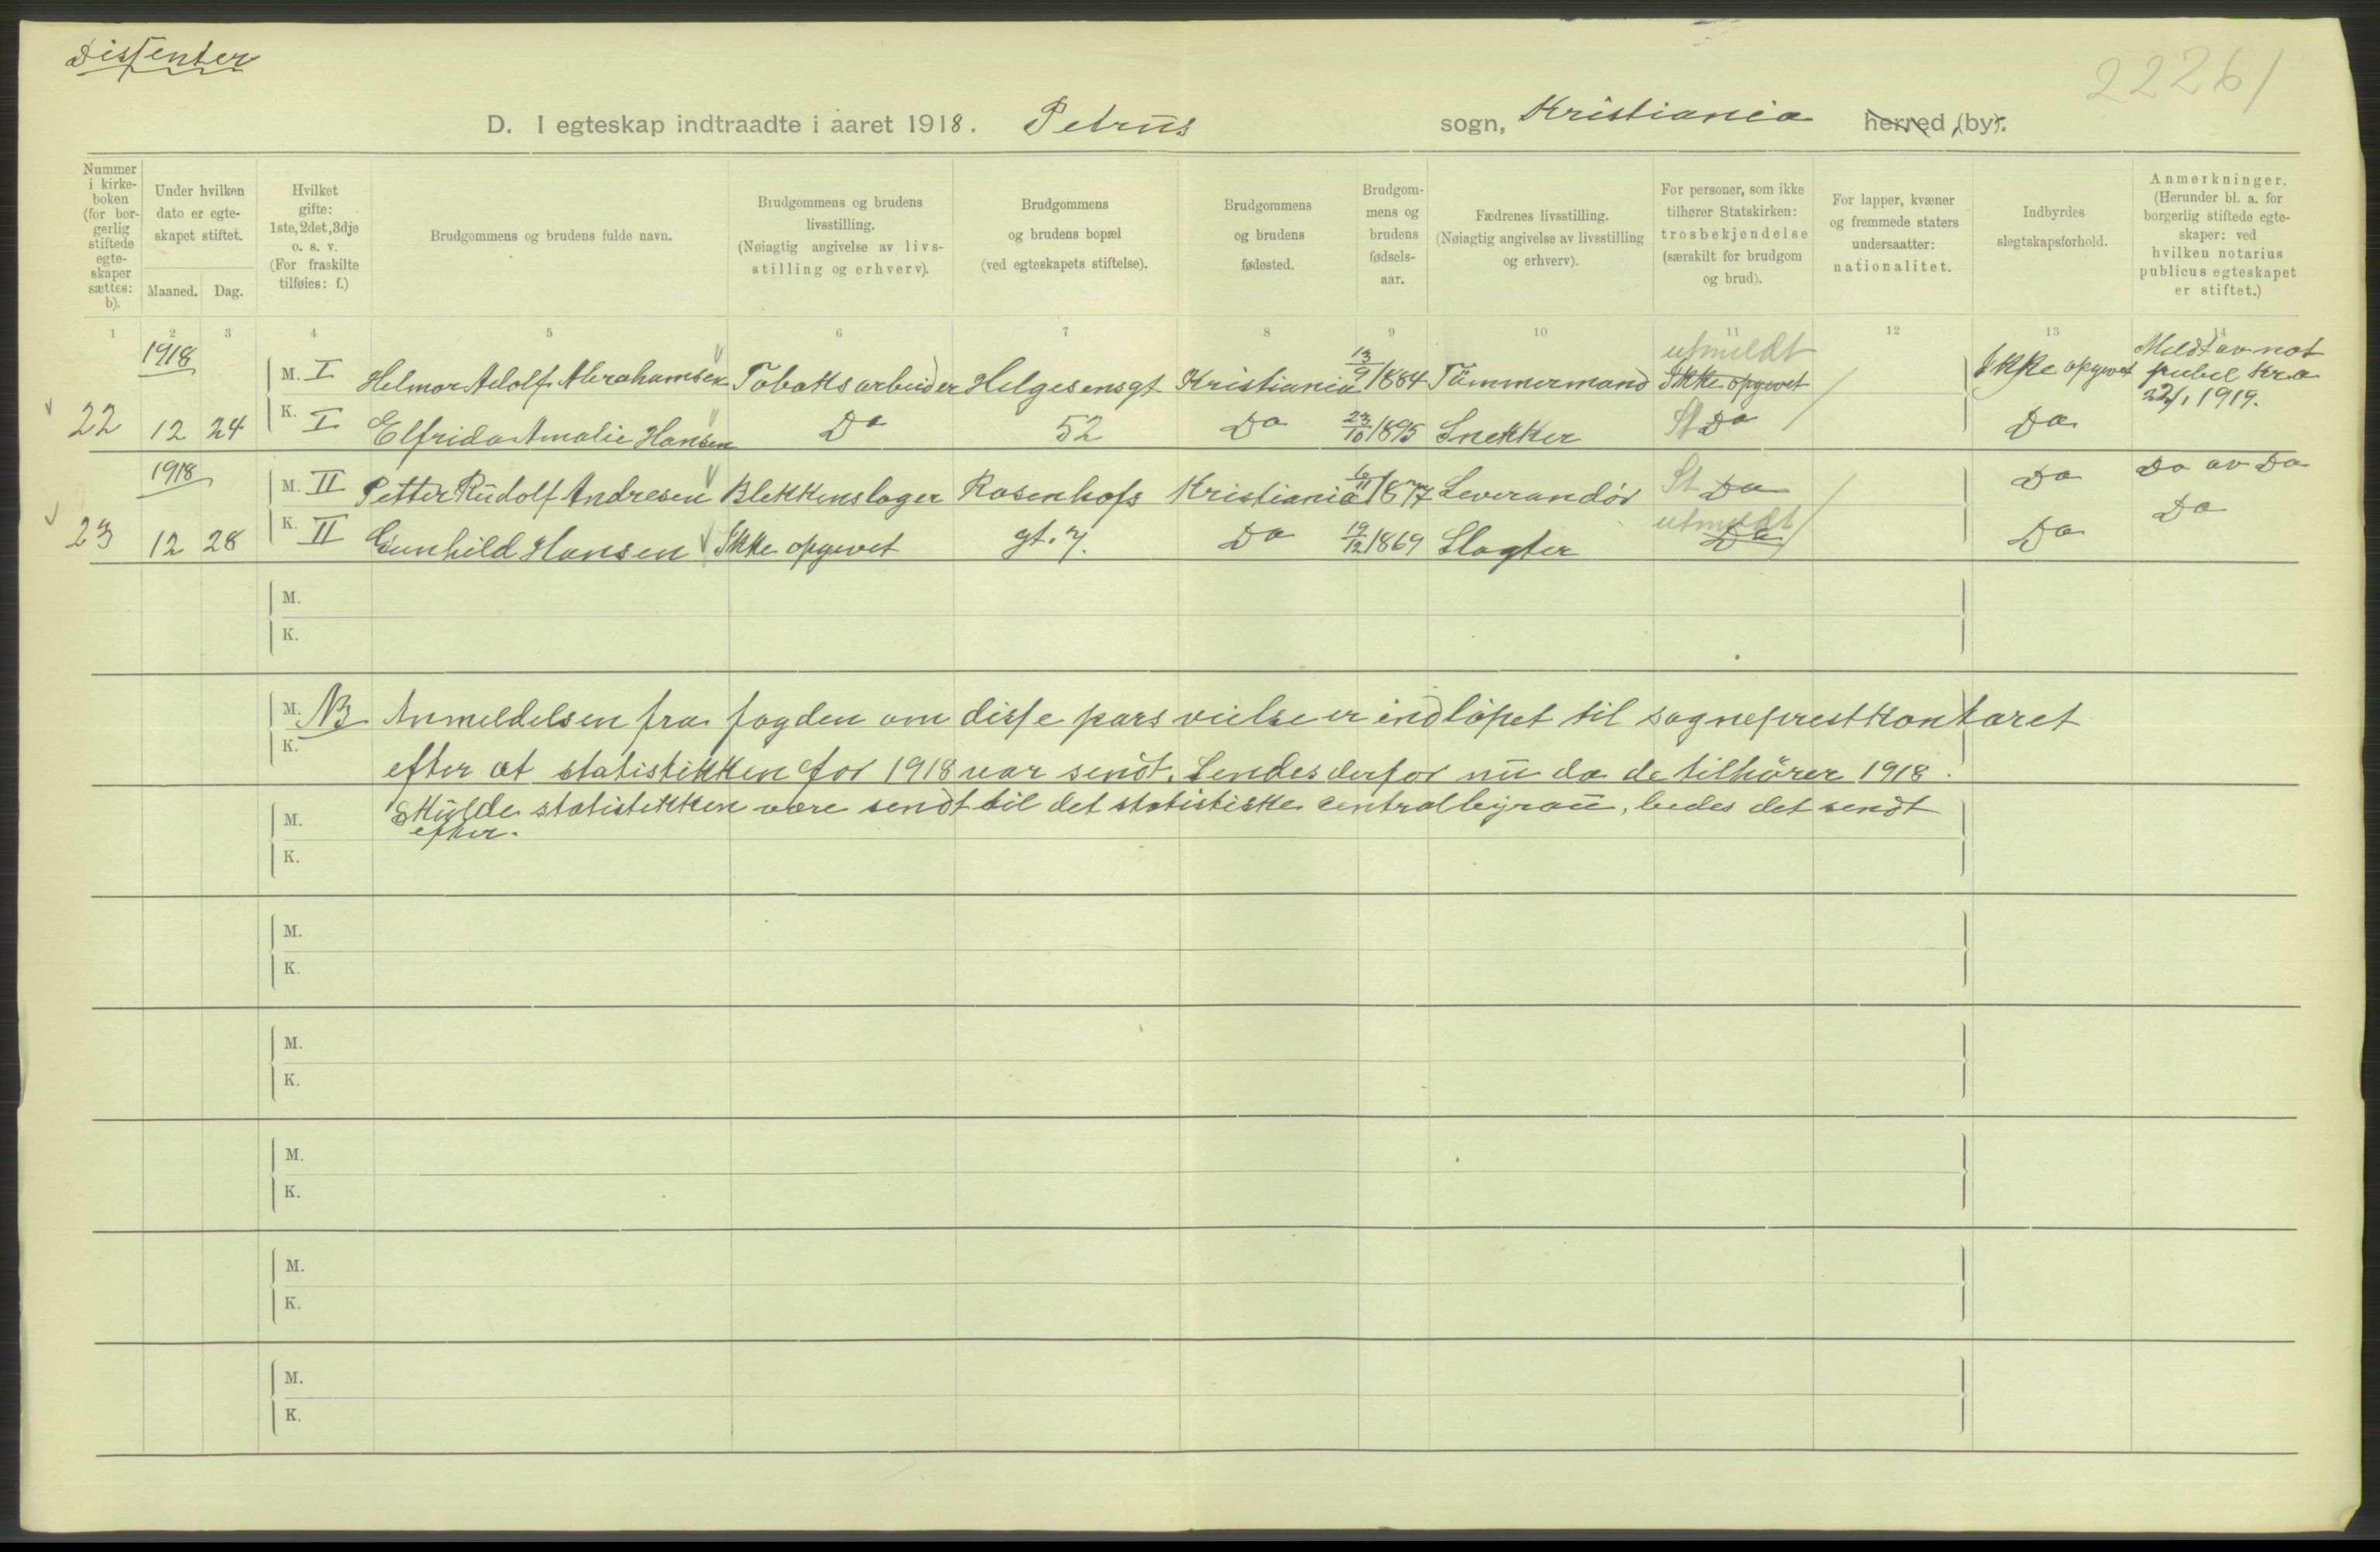 Dissenter
22261
D. I egteskap indtraadte i aaret 1918. Petrus sogn, Kristiania herred, (by).
Nummer i kirke- boken (for bor- gerlig stiftede egte- skaper sættes: b).
Under hvilken dato er egte- skapet stiftet.
Maaned. Dag.
Hvilket gifte: 1ste, 2det, 3dje o. s. v. (For fraskilte tilføies: f.)
Brudgommens og brudens fulde navn.
Brudgommens og brudens livsstilling. (Nøiagtig angivelse av livs- stilling og erhverv).
Brudgommens og brudens bopæl (ved egteskapets stiftelse).
Brudgommens og brudens fødested.
Brudgom- mens og brudens fødsels- aar.
Fædrenes livsstilling. (Nøiagtig angivelse av livsstilling og erhverv).
For personer, som ikke tilhører Statskirken: trosbekjendelse (særskilt for brudgom og brud).
For lapper, kvæner og fremmede staters undersaatter: nationalitet.
Indbyrdes slegtskapsforhold.
Anmerkninger. (Herunder bl. a. for borgerlig stiftede egte- skaper: ved hvilken notarius publicus egteskapet er stiftet.)
1 2 3 4 5 6 7 8 9 10 11 12 13 14
1918 M. I Helmer Adolf Abrahamsen Tobaksarbeider Helgesensgt Kristiania 13/9 1884 Tömmermand utmeldt Ikke opgivet Ikke opgivet Meldt av not publ Kra 22/1 1919.
22 12 24 K. I Elfrida Amalie Hansen Do 52 Do 23/10 1895 Snekker St Do Do
1918 M. II Petter Rudolf Andresen Blekkenslager Rosenhofs Kristiania 6/11 1877 Leverandör St Do Do Do av Do
23 12 28 K. II Gunhild Hansen Ikke opgivet gt. 7. Do 19/12 1869 Slagter utmeldt Do Do Do
M.
K.
M. NB Anmeldelsen fra fogden om disse pars vielse er indlöpet til sogneprestkontoret
K. efter at statistikken for 1918 var sendt. Sendes derfor nu da de tilhörer 1918.
M. Skulde statistikken være sendt til det statistiske centralbyrau, bedes det sendt
efter.
K.
M.
K.
M.
K.
M.
K.
M.
K.
M.
K.